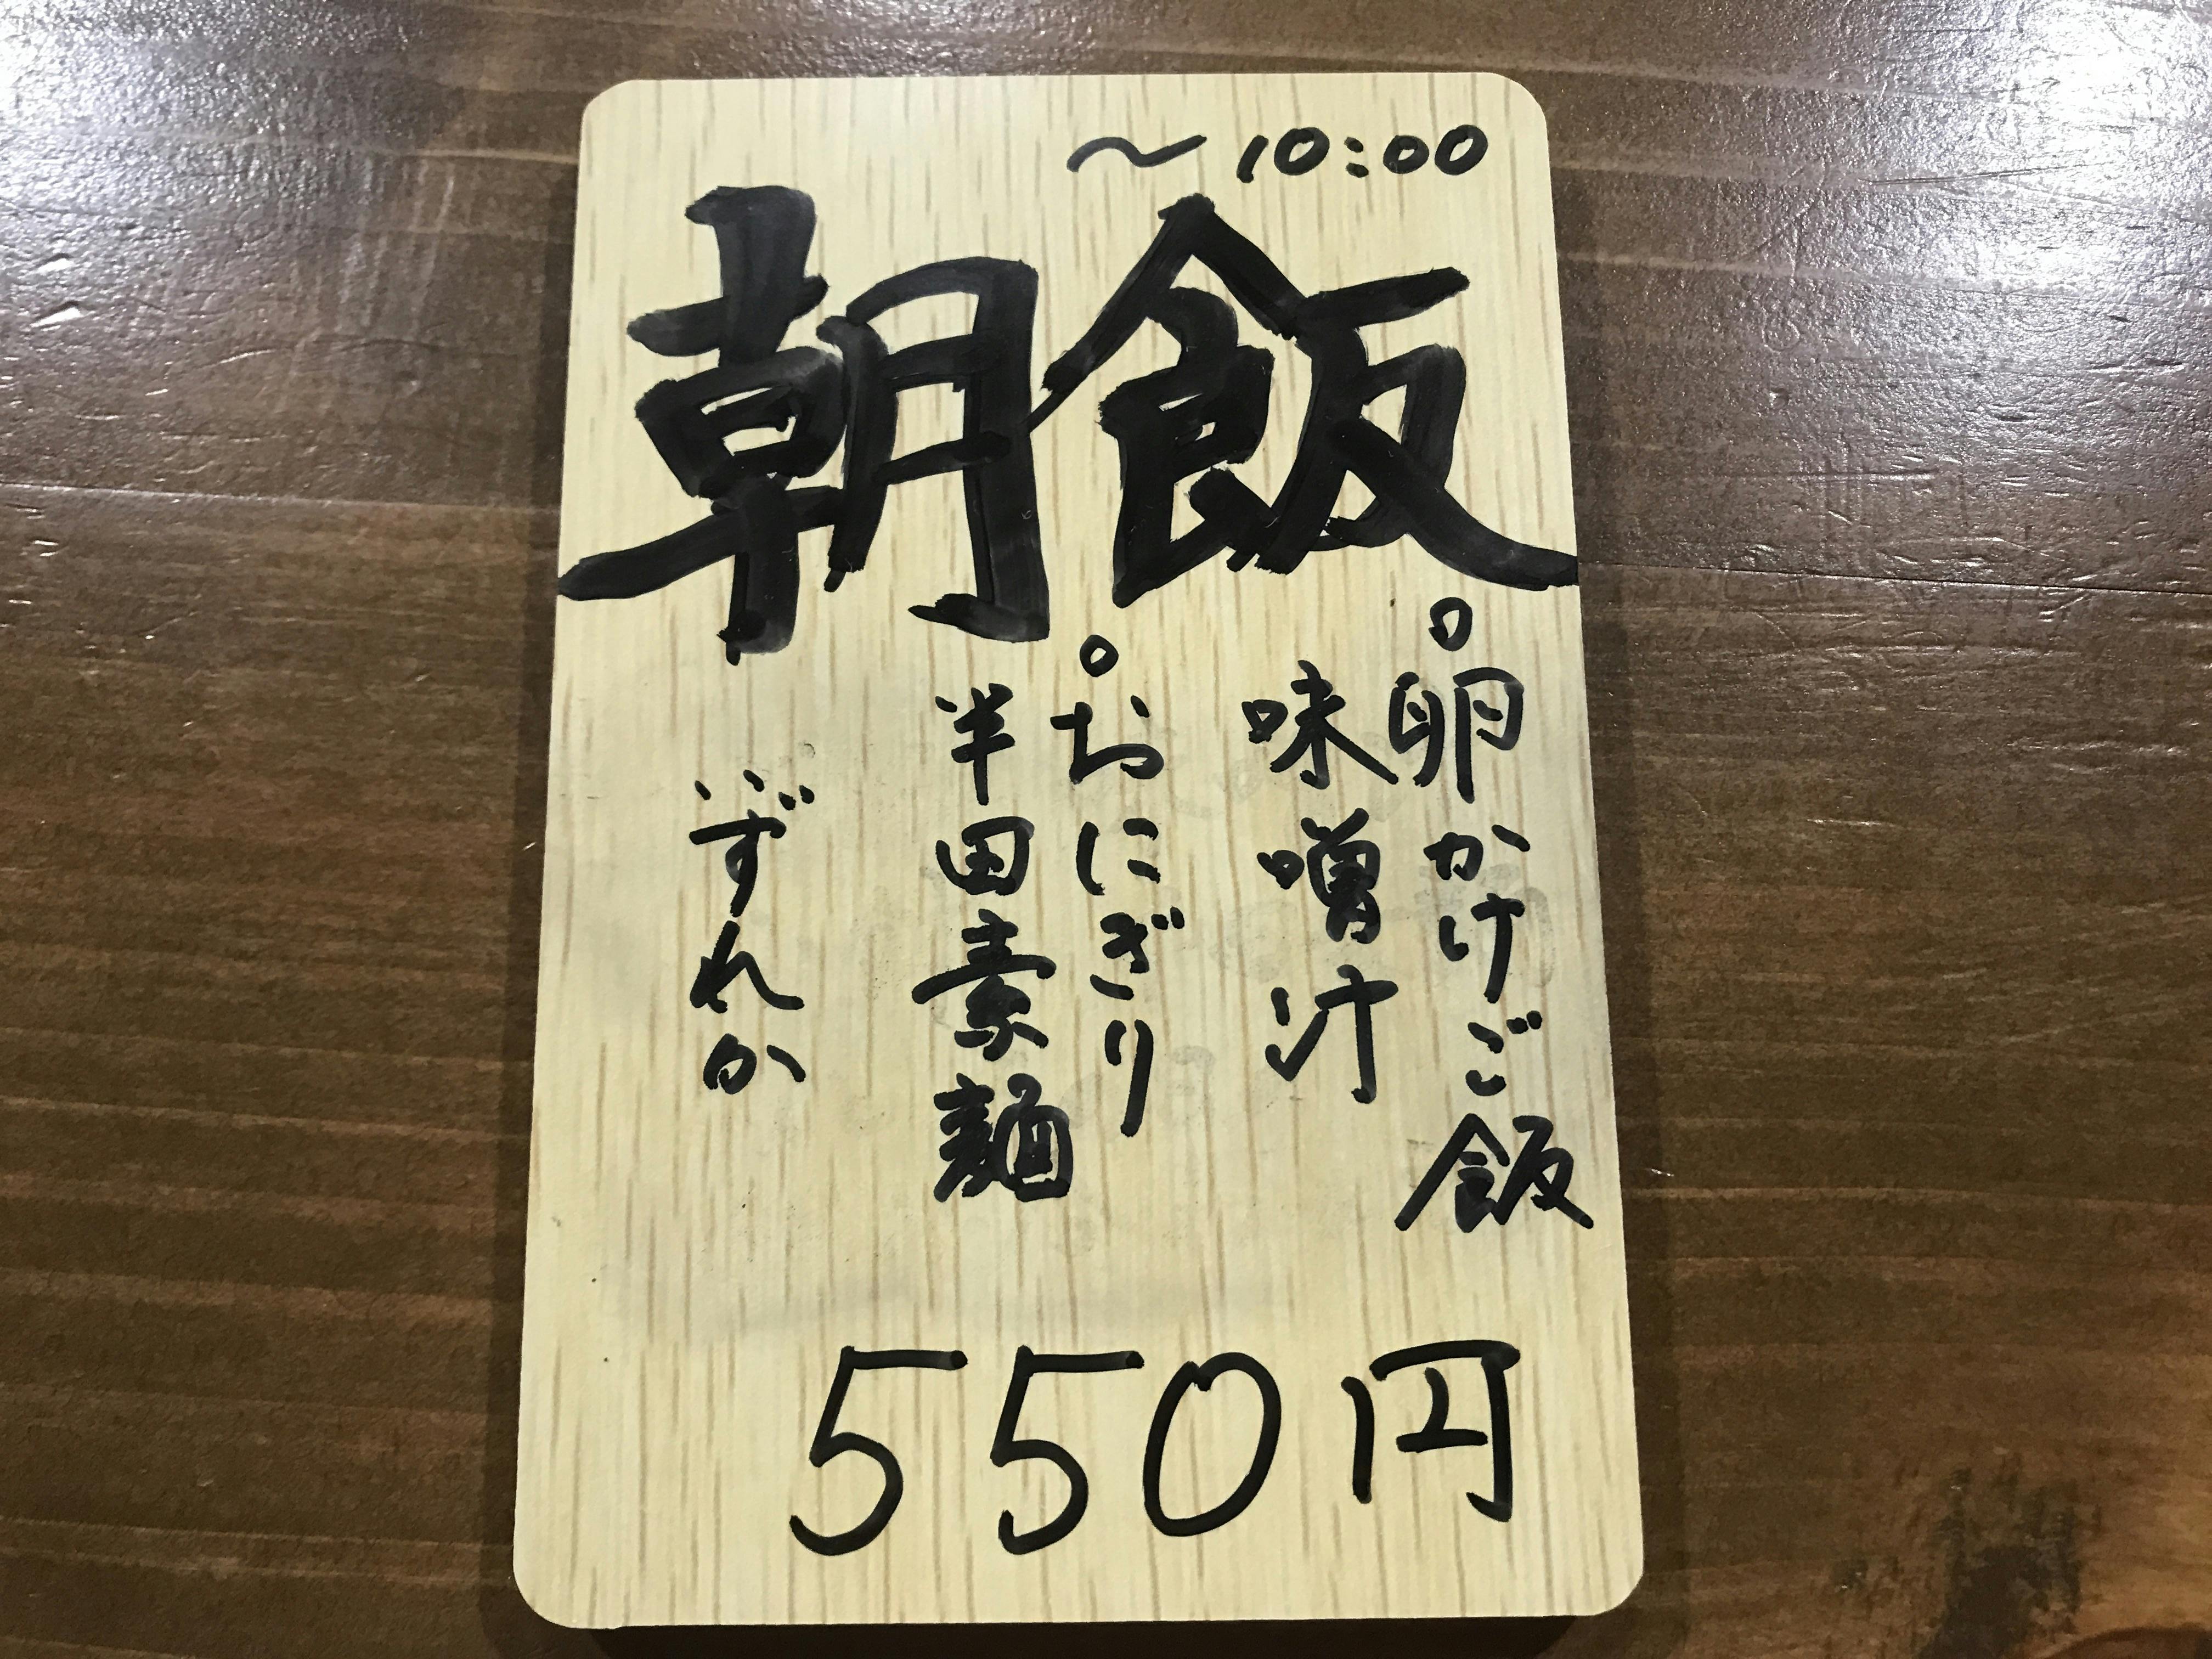 ～10:00
朝飯
○卵かけご飯
味噌汁
○おにぎり
半田素麺
いずれか
550円